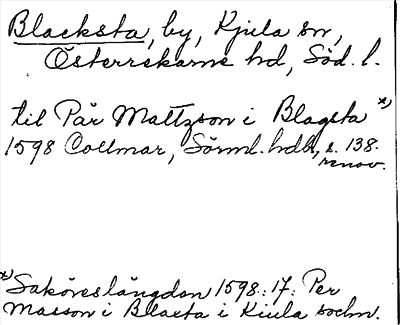 Blacksta, by, Kjula sn,
Österrekarne hd, Söd. l.
til Pär Mattzson i Blagsta x)
1598 Collmar, Sörml. hdl, s. 138.
renov.
x) Saköreslängdon 1598:17: Per
Masson i Blacta i Kiula sochn.